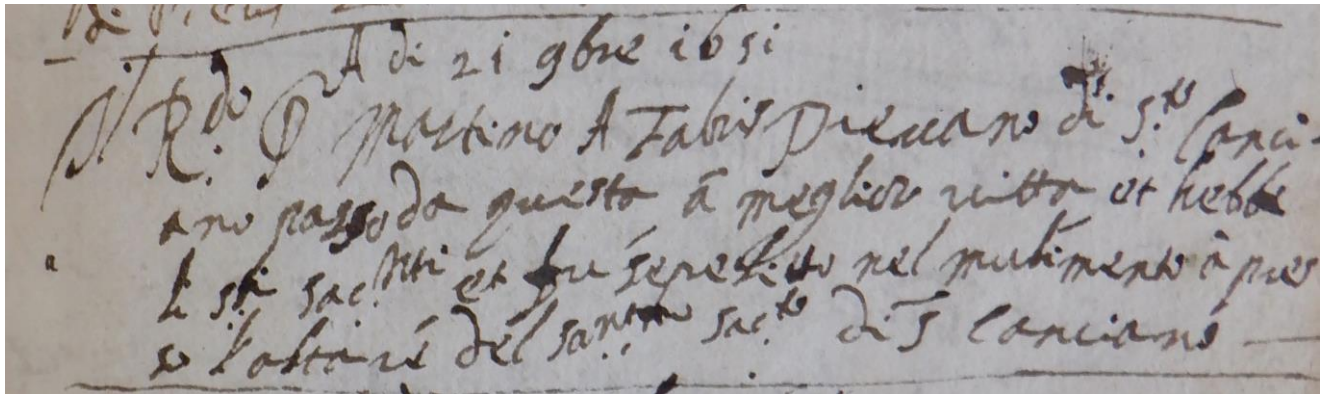 A di 21 9bre 1651
Il R.do P Martino A Fabris Pieuano di S.to Canci-
ano passo da questa á meglior uitta et hebbe
li s.ti sac.nti et fu sepelitto nel mulimento á pres
so l'altaré dél san.mo sac.to di S Canciano